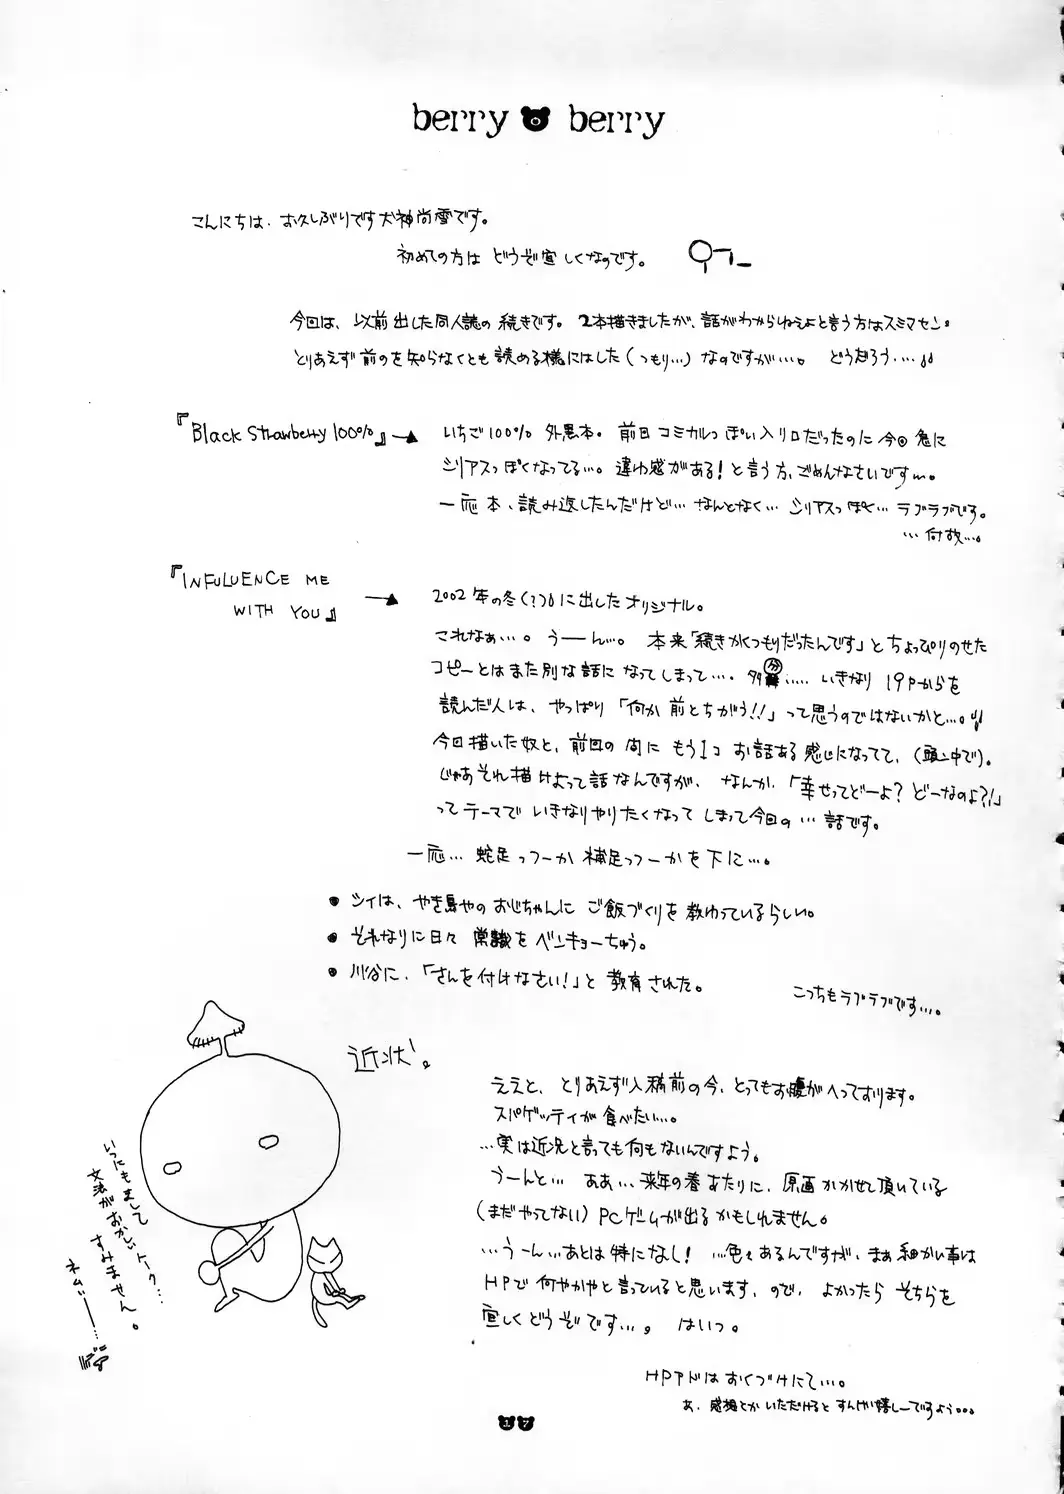 berry berry
こんにちは、お久しぶりです犬神尚雪です。
初めての方は どうぞ宜しくなのです。
今回は、以前出した同人誌の続きです。2本描きましたが、話がわからねぇよと言う方はスミマセン。
とりあえず前のを知らなくとも読める様にはした(つもり…)なのですが…。 どうだろう….
『Black Strawberry 100%』→ いちご100% 外黒本。前回コミカルっぽい入り口だったのに今回急に
シリアスっぽくなってる…。違和感がある!と言う方、ごめんなさいです…。
一応本、読み返したんだけど… なんとなく… シリアスっぽく… ラブラブです。
…何故…。
『INFULUENCE ME
WITH YOU』
→ 2002年の冬(?)に出したオリジナル。
これなぁ…。うーん…。本来「続きかくつもりだったんです」とちょっぴりのせた
コピーとはまた別な話になってしまって…. 多分..... いきなり19Pからを
読んだ人は、やっぱり「何か前とちがう!!」って思うのではないかと…。
今回描いた奴と、前回の間に もう1コ お話ある感じになってて、(頭ン中で)。
じゃあそれ描けよって話なんですが、なんか、「幸せってどーよ?どーなのよ?!」
ってテーマで いきなりやりたくなって しまって今回の…話です。
一応… 蛇足っつーか 補足っつーかを下に…。
● シィは、やき鳥やのおじちゃんに ご飯づくりを 教わっているらしい。
● それなりに日々 常識を ベンキョーちゅう。
● 川谷に、「さんを付けなさい!」と 教育された。
こっちもラブラブです…。
近状。
ええと、とりあえず入稿前の今、とってもお腹がへっております。
スパゲッティが食べたい…。
…実は近況と言っても何もないんですよう。
うーんと… ああ… 来年の春あたりに、原画かかせて頂いている
(まだやってない)PCゲームが出るかもしれません。
…うーん…あとは特になし! …色々あるんですが、まぁ細かい事は
HPで何やかやと言っていると思います、ので、よかったら そちらを
宜しくどうぞです…。 はいっ。
いつにもまして
文法がおかしいトーク…
すみません。
ネムい――…
HPアドはおくづけにて…。
あ、感想とかいただけると すんげい嬉しーですよう...
17